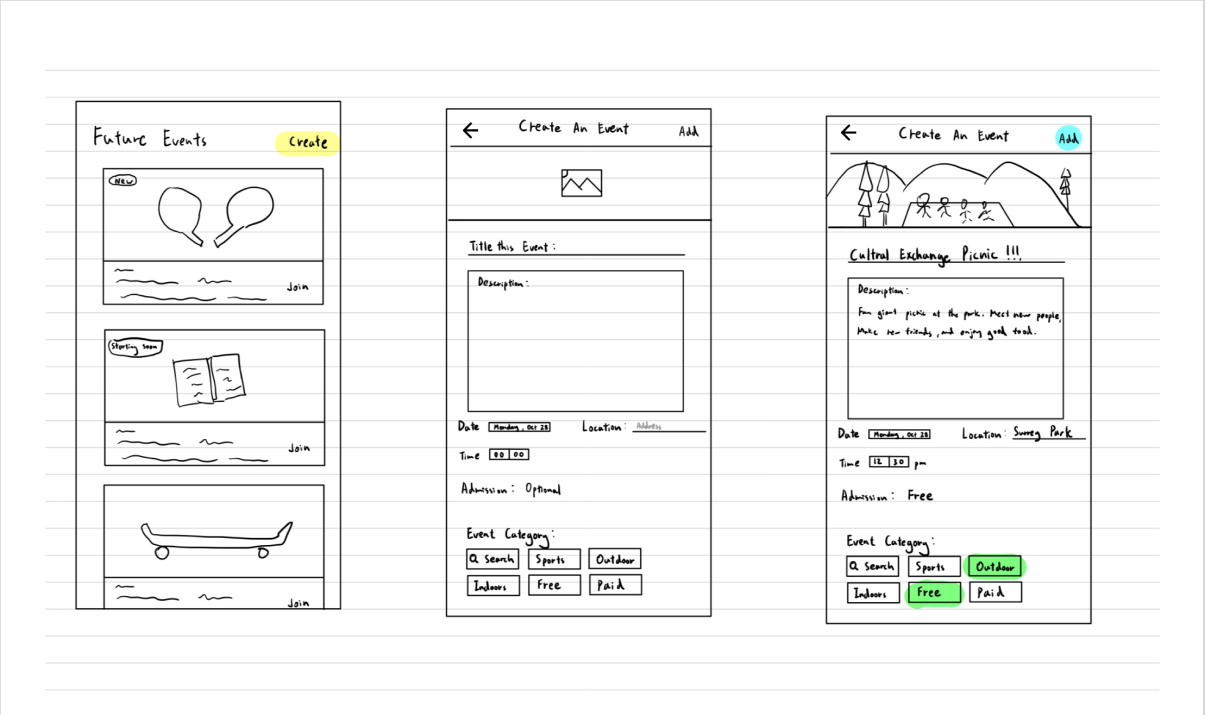 Future Events
Create
New
Join
Starting soon
Join
Join
Create An Event
Add
Title this Event:
Description:
Date Monday, Oct 28 Location: Address
Time 00 00
Admission: Optional
Event Category:
Search Sports Outdoor
Indoors Free Paid
Create An Event
Add
Cultral Exchange Picnic !!!
Description:
Fun giant picnic at the park. Meet new people,
Make new friends, and enjoy good food.
Date Monday, Oct 28 Location: Surrey Park
Time 12 30 pm
Admission: Free
Event Category:
Search Sports Outdoor
Indoors Free Paid